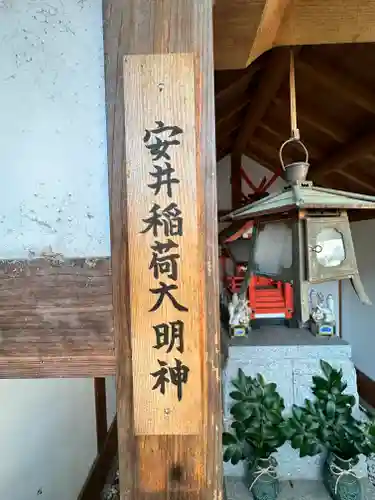 安井稲荷大明神